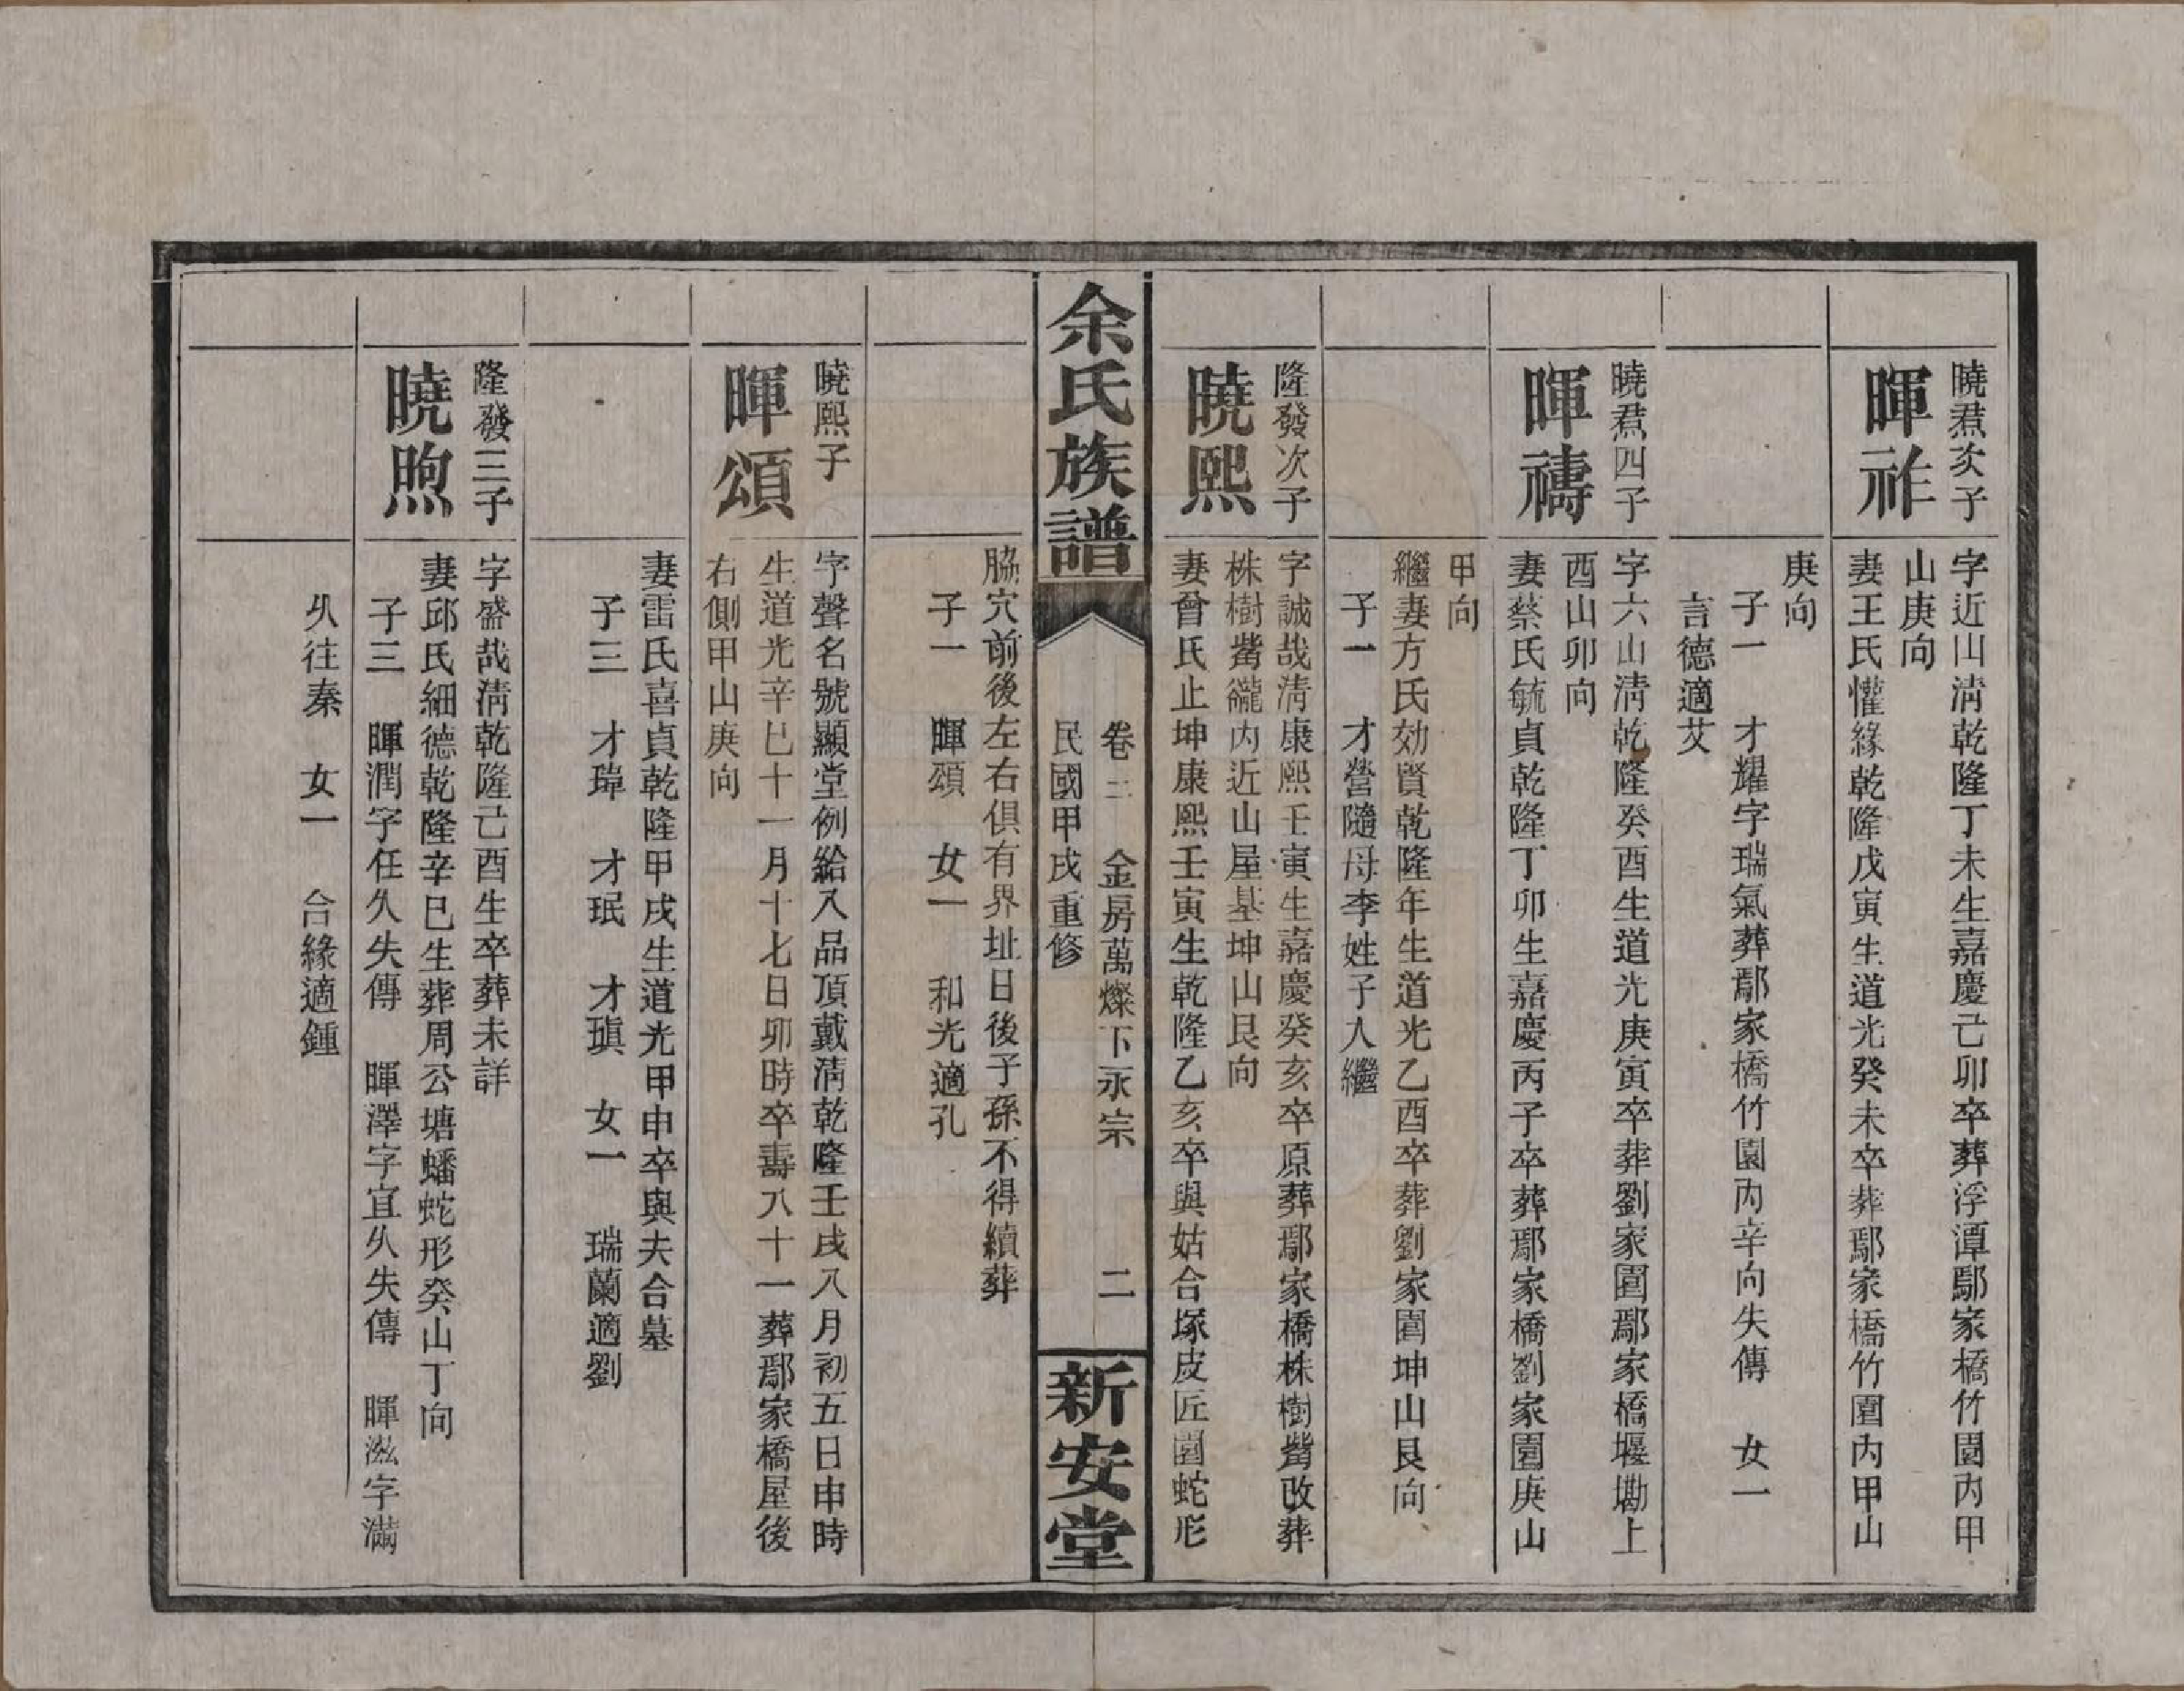 曉焄次子
暉祚
字近山清乾隆丁未生嘉慶己卯卒葬浮潭鄢家橋竹園內甲
山庚向
妻王氏懽緣乾隆戊寅生道光癸未卒葬鄢家橋竹園內甲山
庚向
子一 才耀字瑞氣葬鄢家橋竹園內辛向失傳 女一
言德適艾
曉焄四子
暉禱
字六山清乾隆癸酉生道光庚寅卒葬劉家園鄢家橋堰墈上
酉山卯向
妻蔡氏毓貞乾隆丁卯生嘉慶丙子卒葬鄢家橋劉家園庚山
甲向
繼妻方氏効賢乾隆年生道光乙酉卒葬劉家園坤山艮向
子一 才營隨母李姓子人繼
隆發次子
曉熙
字誠哉清康熙壬寅生嘉慶癸亥卒原葬鄢家橋株樹觜改葬
株樹觜巃內近山屋基坤山艮向
妻曾氏止坤康熙壬寅生乾隆乙亥卒與姑合塚皮匠園蛇形
余氏族譜
卷三 金房萬燦下永宗 二
民國甲戌重修
新安堂
脇穴前後左右俱有界址日後子孫不得續葬
子一 暉頌 女一 和光適孔
曉熙子
暉頌
字聲名號顯堂例給八品頂戴清乾隆壬戌八月初五日申時
生道光辛巳十一月十七日卯時卒壽八十一葬鄢家橋屋後
右側甲山庚向
妻雷氏喜貞乾隆甲戌生道光甲申卒與夫合墓
子三 才瑋 才珉 才瑱 女一 瑞蘭適劉
隆發三子
曉煦
字盛哉清乾隆己酉生卒葬未詳
妻邱氏細德乾隆辛巳生葬周公塘蟠蛇形癸山丁向
子三 暉潤字任久失傳 暉澤字宜久失傳 暉滋字滿
久往秦 女一 合緣適鍾